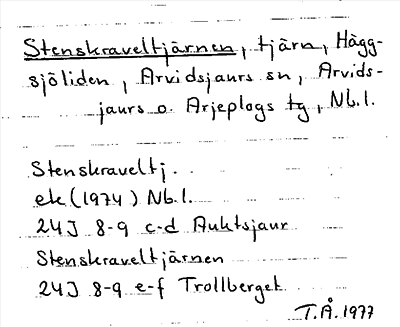 Stenskraveltjärnen, tjärn, Hägg-
sjöliden, Arvidsjaurs sn, Arvids-
jaurs o. Arjeplogs tg, Nb.l.
Stenskraveltj.
ek (1974) Nb.l.
24J 8-9 c-d Auktsjaur
Stenskraveltjärnen
24J 8-9 e-f Trollberget
T.Å. 1977